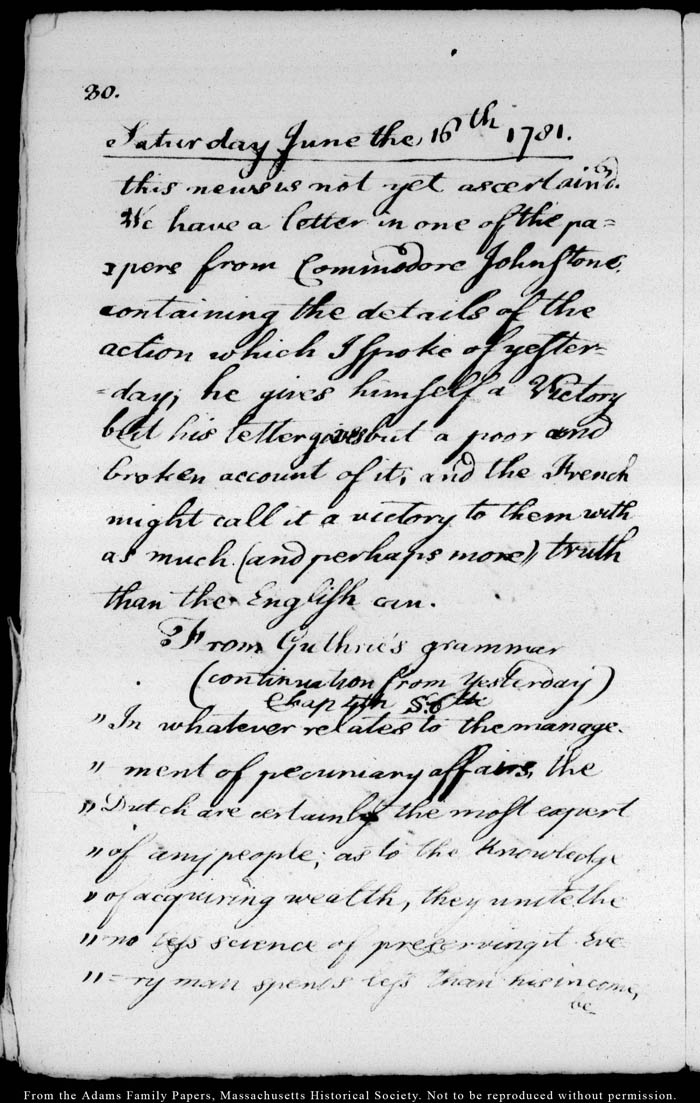 30.
Saturday June the 16th 1781.
this news is not yet ascertain'd.
We have a letter in one of the pa=
=pers from Commodore Johnstone,
containing the details of the
action which I spoke of yester=
=day; he gives himself a Victory
but his letter gives but a poor and
broken account of it, and the French
might call it a victory to them with
as much (and perhaps more) truth
than the English can.
From Guthrie's grammar
(continuation from Yesterday)
Chap 4th S. 6th
" In whatever relates to the manage-
" ment of pecuniary affairs, the
" Dutch are certainly the most expert
" of any people; as to the Knowledge
" of acquiring wealth, they unite the
" no less science of preserving it Eve
" =ry man spends less than his income,
be
From the Adams Family Papers, Massachusetts Historical Society. Not to be reproduced without permission.